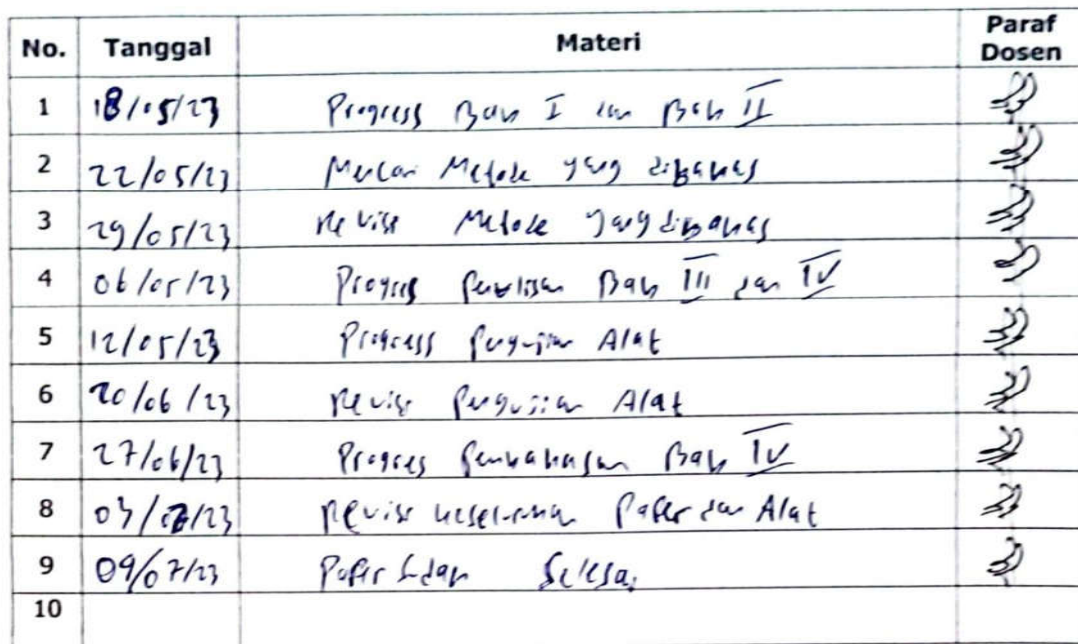 No. Tanggal Materi Paraf Dosen
1 18/05/23 Progress Bab I dan Bab II
2 22/05/23 Mencari Metode yang dibahas
3 29/05/23 Revisi Metode yang dibahas
4 06/05/23 Progres Penulisan Bab III dan IV
5 12/05/23 Progress Pengujian Alat
6 20/06/23 Revisi Pengujian Alat
7 27/06/23 Progres Pembahasan Bab IV
8 03/07/23 Revisi keseluruhan Paper dan Alat
9 09/07/23 Paper Sudah Selesai
10